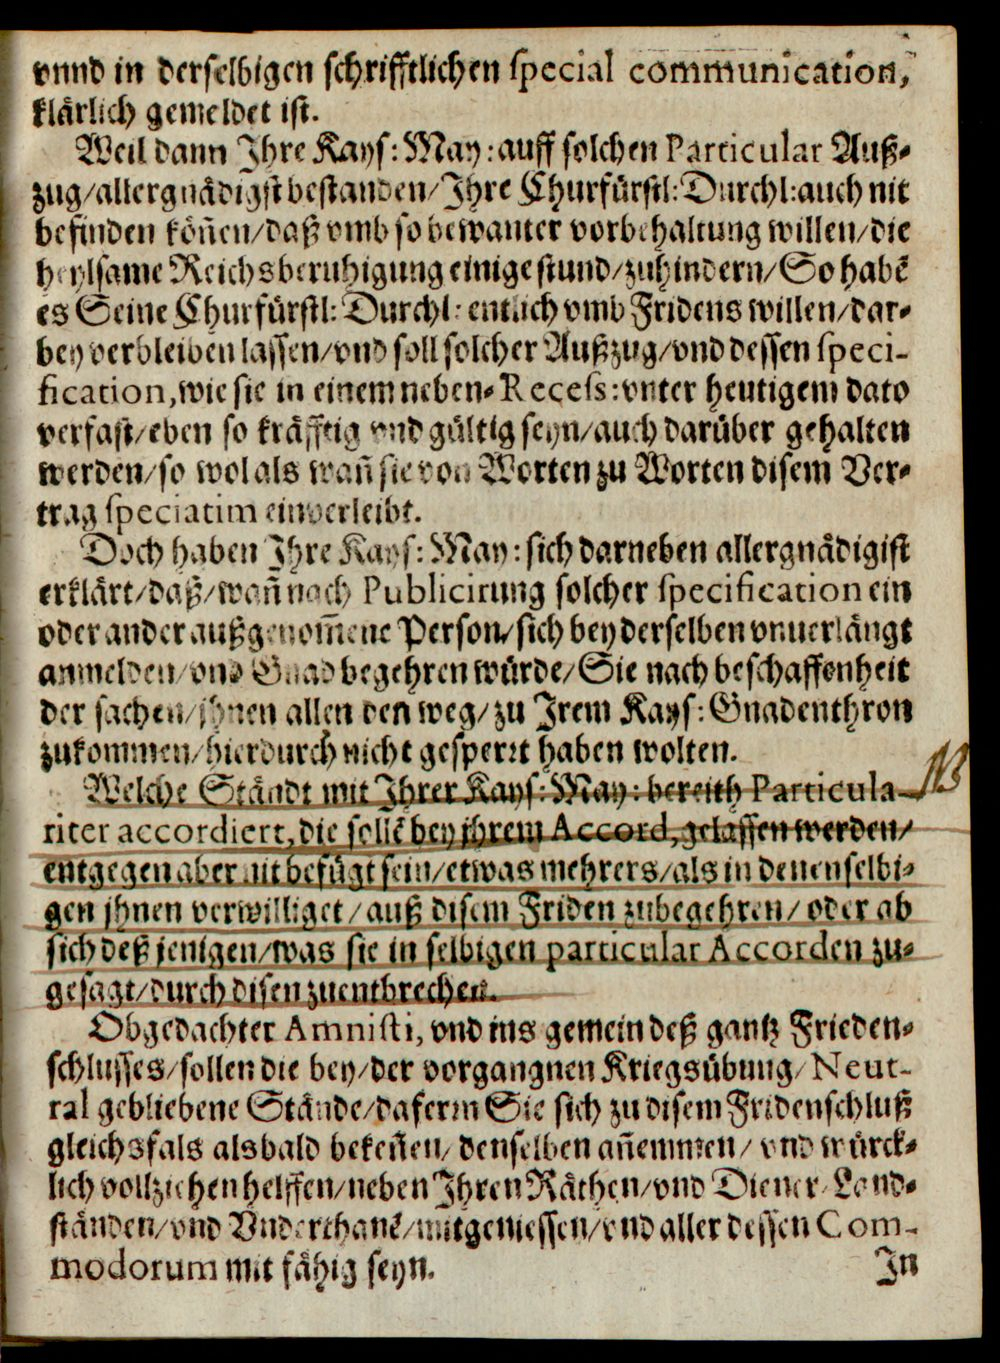 vnnd in derselbigen schrifftlichen special communication,
klärlich gemeldet ist.
Weil dann Ihre Kays: May: auff solchen Particular Auß⸗
zug/allergnädigst bestanden/Ihre Churfürstl: Durchl: auch nit
befinden köñen/daß vmb so bewanter vorbehaltung willen/die
heylsame Reichsberuhigung einige stund/zuhindern/So habẽ
es Seine Churfürstl: Durchl: entlich vmb Fridens willen/dar⸗
bey verbleiben lassen/vnd soll solcher Außzug/vnd dessen speci-
fication, wie sie in einem neben⸗Recess: vnter heutigem dato
verfast/eben so kräfftig vnd gültig seyn/auch darüber gehalten
werden/so wol als wañ sie von Worten zu Worten disem Ver⸗
trag speciatim einverleibt.
Doch haben Ihre Kays: May: sich darneben allergnädigist
erklärt/daß/wañ nach Publicirung solcher specification ein
oder ander außgenom̃ene Person/sich bey derselben vnuerlängt
anmelden/vnd Gnad begehren würde/Sie nach beschaffenheit
der sachen/jhnen allen den weg/zu Irem Kays: Gnadenthron
zukommen/hierdurch nicht gesperrt haben wolten.
Welche Ständt mit Ihrer Kays: May: bereith Particula-
NB
riter accordiert, die sollẽ bey jhrem Accord, gelassen werden/
entgegen aber nit befügt sein/etwas mehrers/als in denenselbi⸗
gen jhnen verwilliget/auß disem Friden zubegehren/oder ab
sich deß jenigen/was sie in selbigen particular Accorden zu⸗
gesagt/durch disen zuentbrechen.
Obgedachter Amnisti, vnd ins gemein deß gantz Frieden⸗
schlusses/sollen die bey/der vorgangnen Kriegsübung/Neut-
ral gebliebene Stände/daferrn Sie sich zu disem Fridenschluß
gleichsfals alsbald bekeñen/denselben añemmen/vnd würck⸗
lich vollziehen helffen/neben Ihren Räthen/vnd Diener/Land⸗
ständen/vnd Vnderthanẽ/mitgeniessen/vnd aller dessen Com-
modorum mit fähig seyn.
In